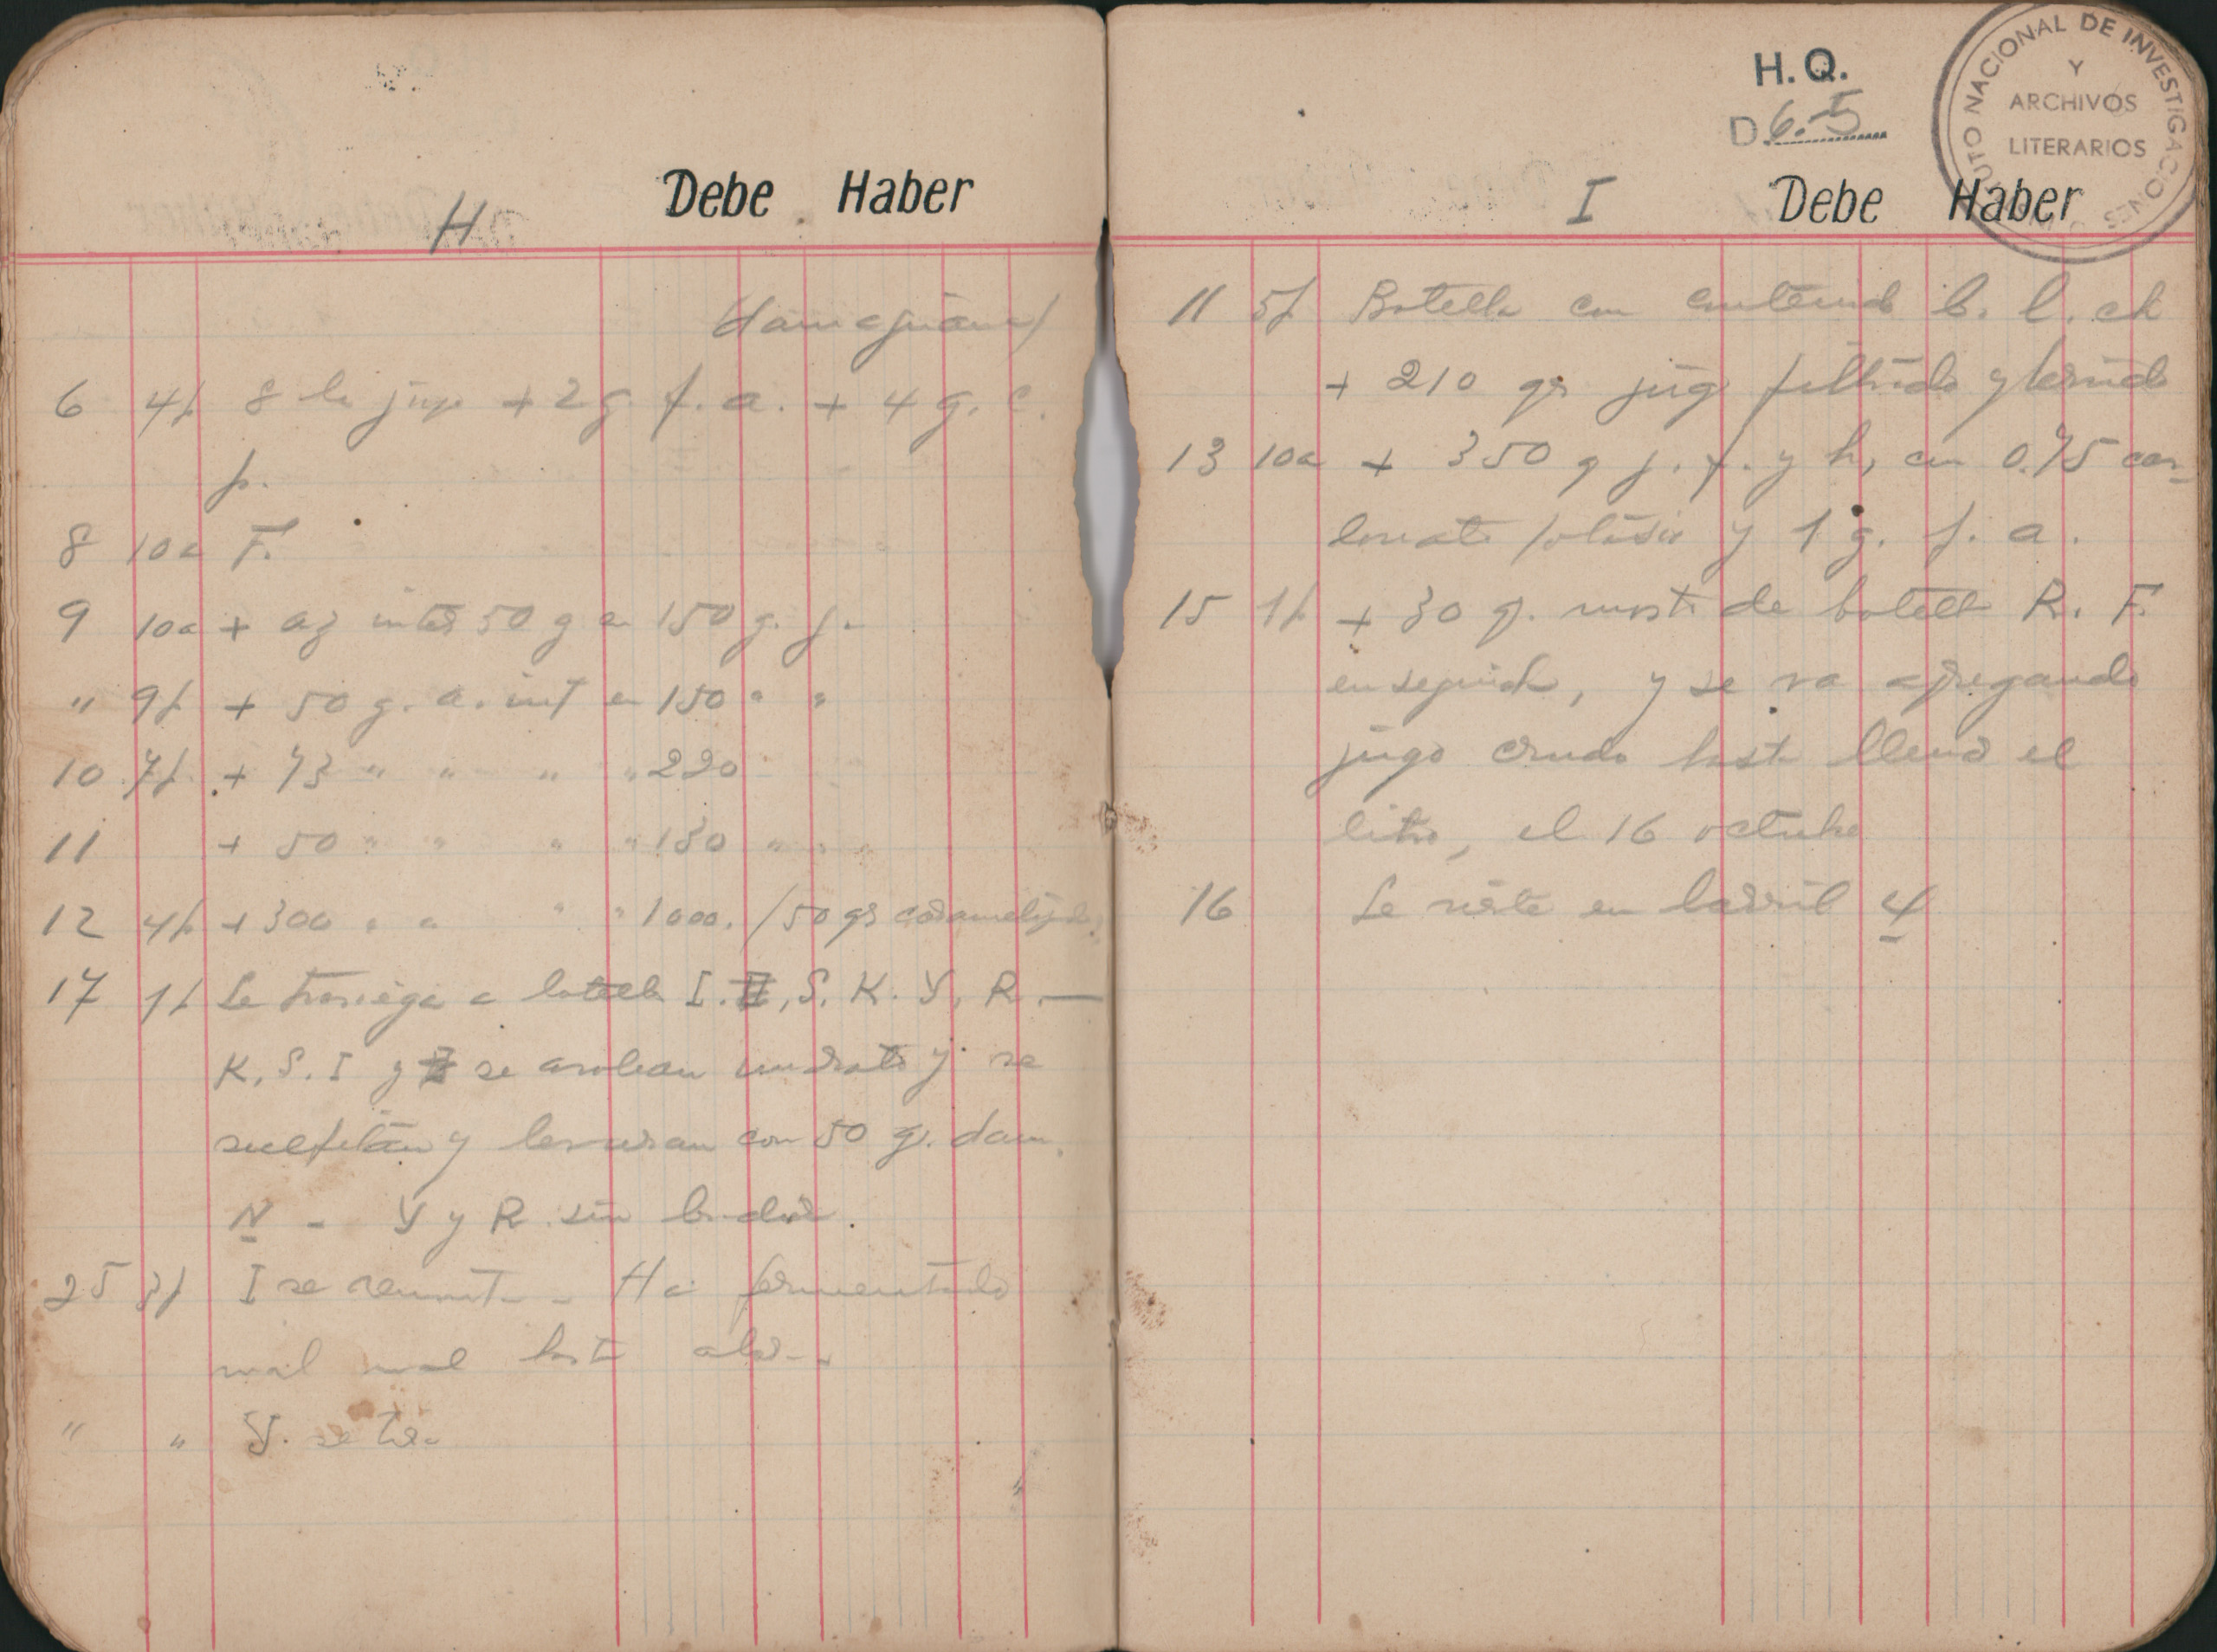 H Debe Haber
damajuana
6 4p 8 l. jugo + 2 g. f. a. + 4 g. c.
p.
8 10a F.
9 10a + az inter 50 g en 150 g. j.
" 9p + 50 g. a. int en 150 " "
10 7p + 73 " " " " 220
11 + 50 " " " " 130 " " "
12 4p +300 " " " " 1000. /50 gs
17 1p Se trasiega a botell I. S. K. Y, R. —
K. S. I y se asolean un rato y se
sulfitan y levuran con 50 g. dam.
N - Y y R. sin
25 3p I se - Ha fermentado
mal mal hasta
" " Y. se tira
H.Q.
D.6.-5
INSTITUTO NACIONAL DE INVESTIGACIONES
Y
ARCHIVOS
LITERARIOS
I Debe Haber
11 5p Botella con contenido b. l. ch
+ 210 gs jugo filtrado y hervido
13 10a + 350 g j. f. y h, con 0.75 car-
bonato potásio y 1 g. f. a.
15 1p + 30 g. mosto de botella R. F.
enseguida, y se va agregando
jugo crudo hasta llenar el
litro, el 16 octubre
16 Se vierte en barril 4